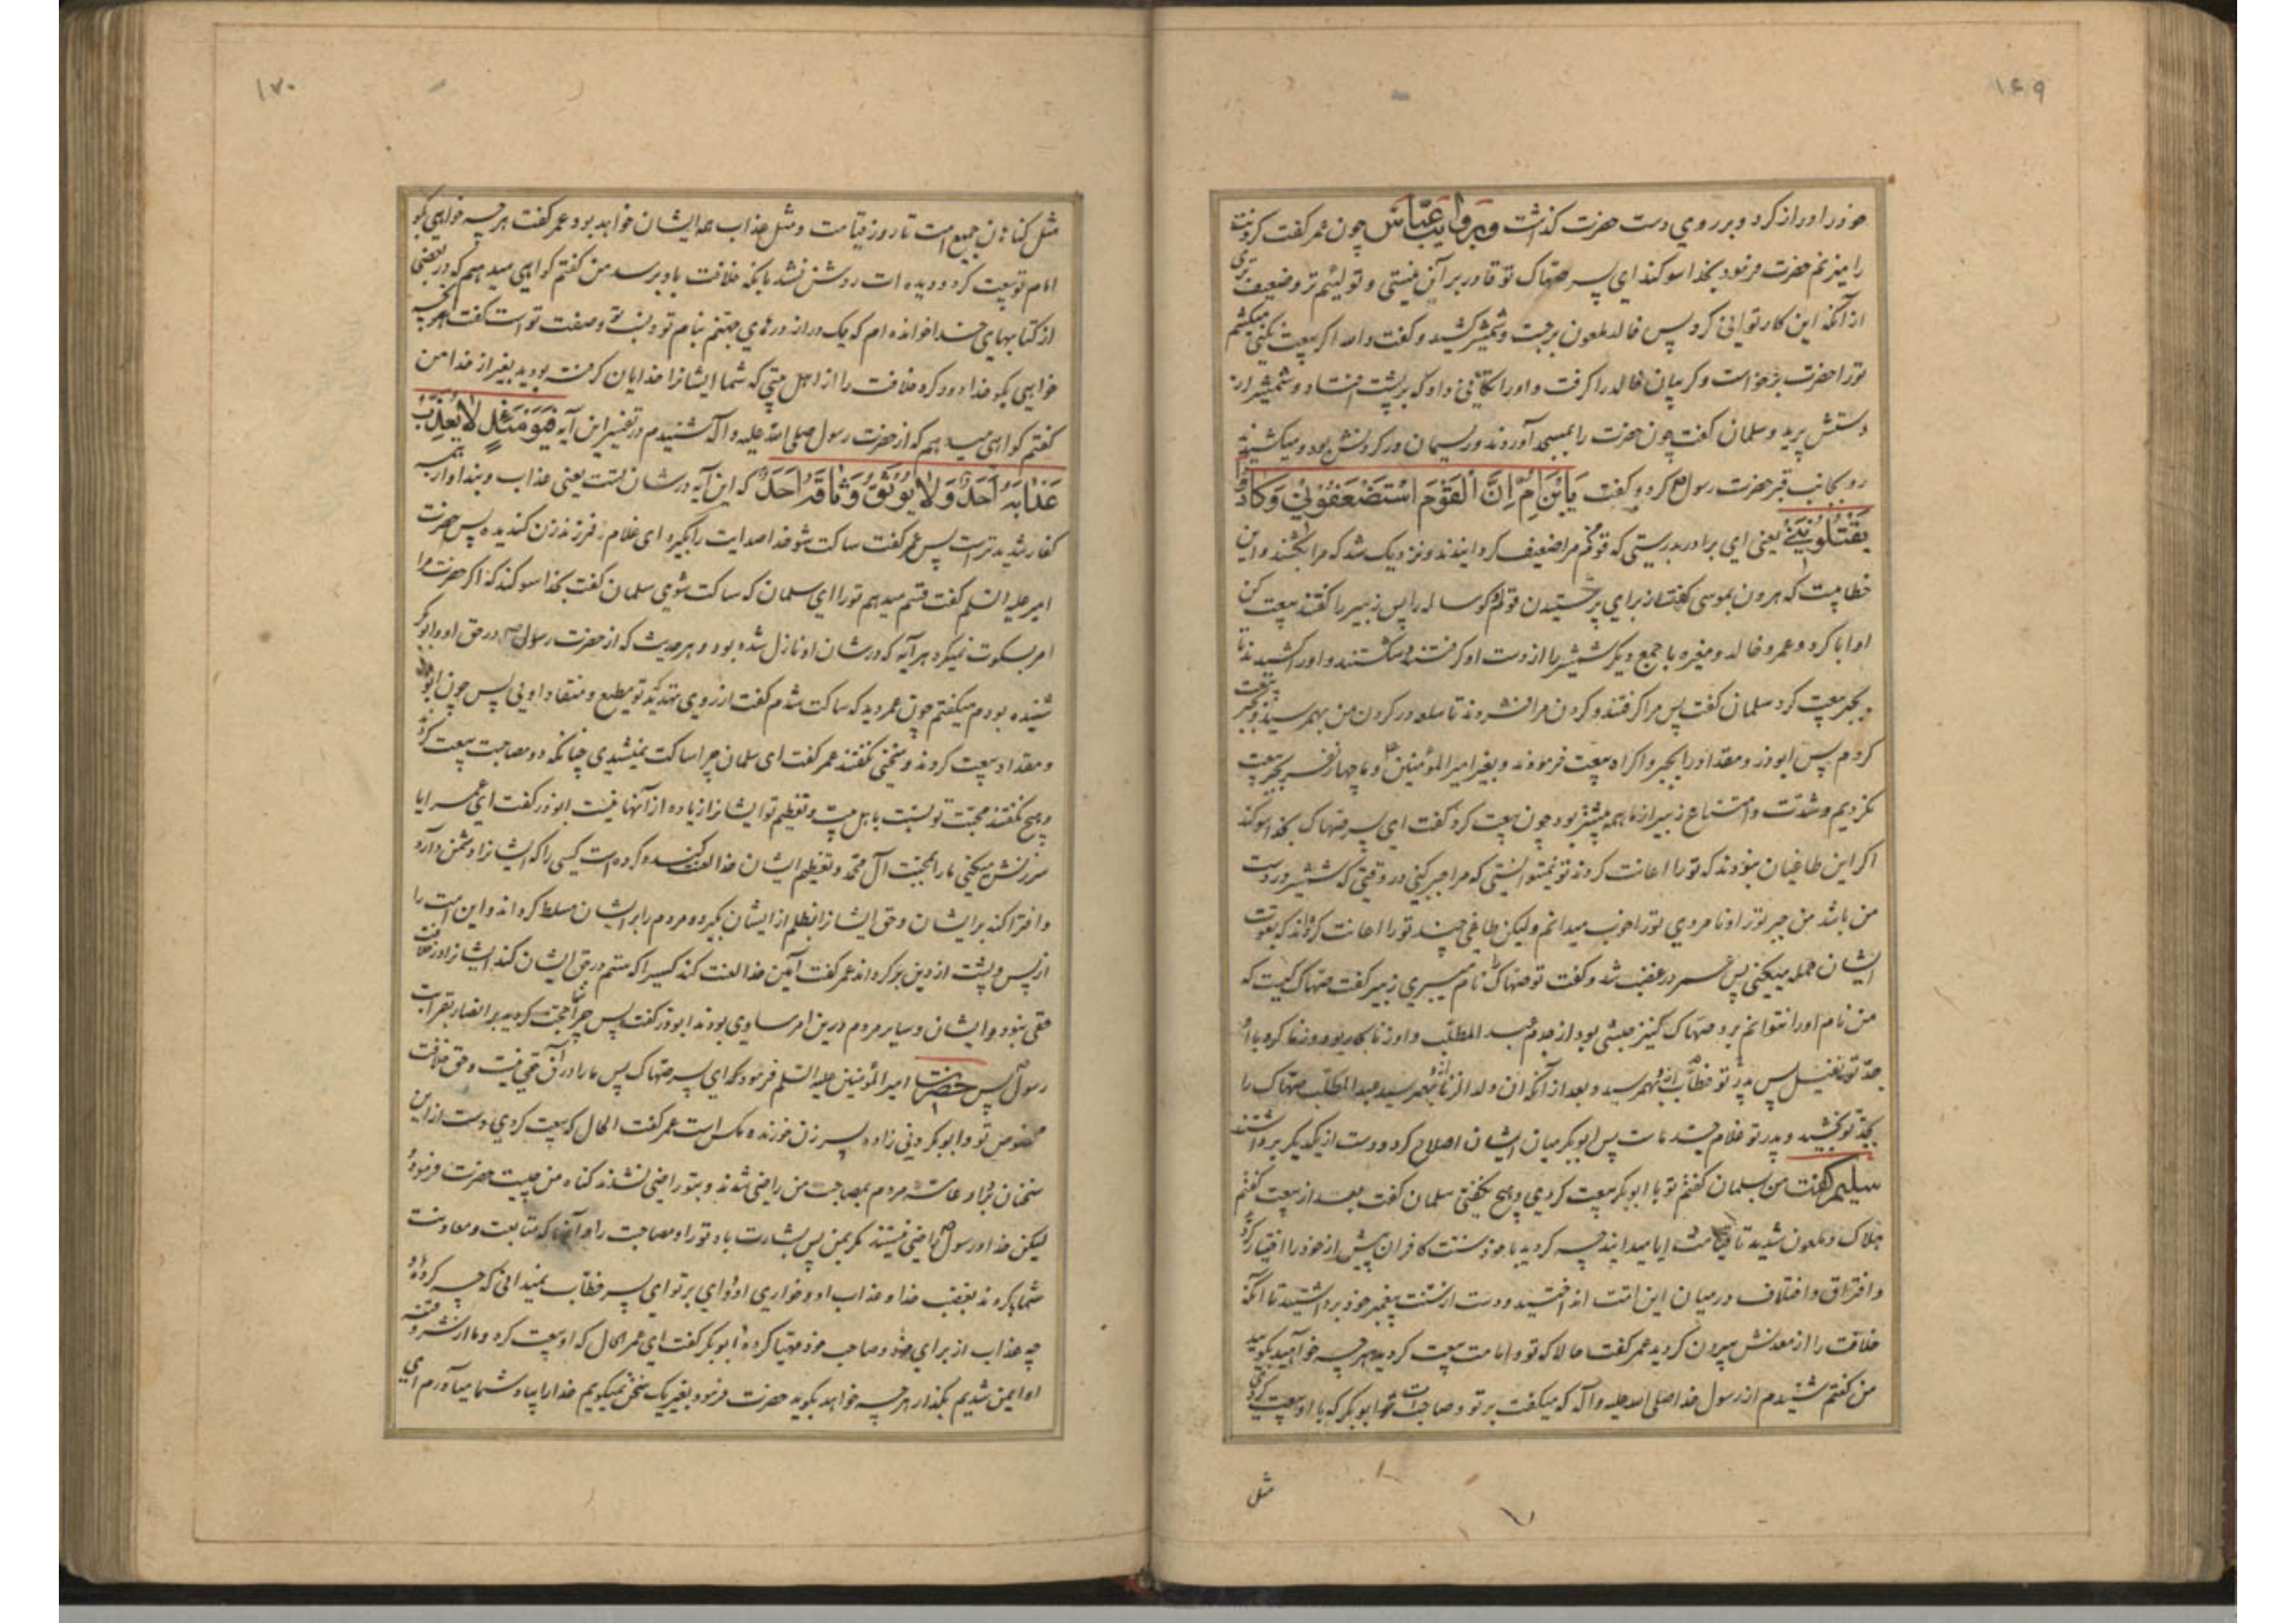 ۱۶۹
خود را دراز کرد و بر روی دست حضرت گذشت و بروایت عباس چون عمر گفت گردنت
را میزنم حضرت فرمود بخدا سوگند ای پسر صهاک تو قادر بر آن نیستی و تو لئیم‌تر و ضعیف تری
از آنکه این کار توانی کرد پس خالد ملعون برجست و شمشیر کشید و گفت والله اگر بیعت نکنی میکشم
تورا حضرت برخواست و گریبان خالد را گرفت و اورا تکانی داد که بر پشت افتاد و شمشیر از
دستش پرید و سلمان گفت چون حضرت را بمسجد آوردند و ریسمان در گردنش بود و میکشیدند
رو بجانب قبر حضرت رسول کرد و گفت یَابْنَ اُمَّ اِنَّ الْقَوْمَ اسْتَضْعَفُونِی وَکَادُوا
یَقْتُلُونَنِی یعنی ای برادر بدرستی که قوم مرا ضعیف گردانیدند و نزدیک شد که مرا بکشند و این
خطابیست که هرون بموسی گفت از برای پرستیدن قوم گوساله را پس زبیر را گفتند بیعت کن
او ابا کرد و عمر و خالد و مغیره با جمع دیگر شمشیر را از دست او گرفتند و شکستند و اورا کشیدند تا
بجبر بیعت کرد سلمان گفت پس مرا گرفتند و گردن مرا فشردند تا سلعه در گردن من بهم رسید و بجبر بیعت
کردم پس ابوذر و مقداد را بجبر و اکراه بیعت فرمودند و بغیر امیر المؤمنین و ما چهار نفر بجبر بیعت
نکردیم و شدت و امتناع زبیر از ما همه بیشتر بود چون بیعت کرد گفت ای پسر صهاک بخدا سوگند
اگر این طاغیان نبودند که تورا اعانت کردند تو نمیتوانستی که مرا جبر کنی در وقتی که شمشیر در دست
من باشد من جبر تورا و نامردی تورا خوب میدانم ولیکن طاغی چند تورا اعانت کردند که بقوت
ایشان حمله میکنی پس عمر در غضب شد و گفت تو صهاک را نام میبری زبیر گفت صهاک کیست که
من نام اورا نتوانم برد صهاک کنیز حبشی بود از جدم عبد المطلب و او زناکار بود و زنا کرد با او
جد تو نفیل پس پدر تو خطاب بهم رسید و بعد از آنکه ان ولد الزنا بهم رسید عبد المطلب صهاک را
بجد تو بخشید و پدر تو غلام جد ماست پس ابوبکر میان ایشان اصلاح کرد و دست از یکدیگر برداشتند
سلیم گفت من بسلمان گفتم تو با ابوبکر بیعت کردی و هیچ نگفتی سلمان گفت بعد از بیعت گفتم
هلاک و ملعون شدید تا قیامت ایا میدانید چه کردید با خود سنت کافران پیش از خود را اختیار کردید
و افتراق و اختلاف در میان این امت انداختید و دست از سنت پیغمبر خود برداشتید تا آنکه
خلافت را از معدنش بیرون کردید عمر گفت حالا که تو و امامت بیعت کردید هر چه خواهید بگویید
من گفتم شنیدم از رسول خدا صلی الله علیه و آله که میگفت بر تو و صاحبت ابوبکر که با او بیعت کردی
مثل
۱۷۰
مثل گناهان جمیع امت تا روز قیامت و مثل عذاب همه ایشان خواهد بود عمر گفت هر چه خواهی بگو
امام تو بیعت کرد و دیده ات روشن نشد بانکه خلافت باو برسد من گفتم گواهی میدهم که در بعضی
از کتابهای خدا خوانده ام که یک در از درهای جهنم بنام تو و نسب تو و صفت تو است گفت هر چه
خواهی بگو خدا دور کرد خلافت را از اهل بیتی که شما ایشانرا خدایان گرفته بودید بغیر از خدا من
گفتم گواهی میدهم که از حضرت رسول صلی الله علیه و آله شنیدم در تفسیر این آیه فَیَوْمَئِذٍ لَا یُعَذِّبُ
عَذَابَهُ اَحَدٌ وَلَا یُوثِقُ وَثَاقَهُ اَحَدٌ که این آیه در شان تست یعنی عذاب و بند او از همه
کفار شدیدتر است پس عمر گفت ساکت شو خدا صدایت را بگیرد ای غلام و فرزند زن گندیده پس حضرت
امیر علیه السلم گفت قسم میدهم تورا ای سلمان که ساکت شوی سلمان گفت بخدا سوگند که اگر حضرت مرا
امر بسکوت نمیکرد هر آیه که در شان او نازل شده بود و هر حدیث که از حضرت رسول در حق او و ابوبکر
شنیده بودم میگفتم چون عمر دید که ساکت شدم گفت از روی تهدید که تو مطیع و منقاد اویی پس چون ابوذر
و مقداد بیعت کردند و سخنی نگفتند عمر گفت ای سلمان چرا ساکت نمیشدی چنانکه دو مصاحبت بیعت کردند
و هیچ نگفتند محبت تو نسبت باهل بیت و تعظیم تو ایشانرا زیاده از آنها نیست ابوذر گفت ای عمر ایا
سرزنش میکنی مارا بمحبت آل محمد و تعظیم ایشان خدا لعنت کند و کرده است کسی را که ایشانرا دشمن دارد
و افترا کند بر ایشان و حق ایشانرا بظلم از ایشان بگیرد و مردم را بر ایشان مسلط گرداند و این امت را
از پس پشت از دین برگرداند عمر گفت آمین خدا لعنت کند کسیرا که ستم در حق ایشان کند ایشانرا در خلافت
حقی نبود و ایشان و سایر مردم درین امر مساوی بودند ابوذر گفت پس چرا شما حجت کردید بر انصار بقرابت
رسول پس حضرت امیر المؤمنین علیه السلم فرمود که ای پسر صهاک پس مارا در آن حقی نیست و حق خلافت
مخصوص تو و ابوبکر دنی زاده پسر زن خورنده مکس است عمر گفت الحال که بیعت کردی دست از این
سخنان بردار عامه مردم بمصاحبت من راضی شدند و بتو راضی نشدند گناه من چیست حضرت فرمود
لیکن خدا و رسول راضی نیستند مگر بمن پس بشارت باد تورا و مصاحبت را و آنها که متابعت و معاونت
شما کردند بغضب خدا و عذاب او و خواری او وای بر تو ای پسر خطاب نمیدانی که چه کرده و
چه عذاب از برای خود و صاحب خود مهیا کرده ابوبکر گفت ای عمر الحال که او بیعت کرد و ما از شر و فتنه
او ایمن شدیم بگذار هر چه خواهد بگوید حضرت فرمود بغیر یک سخن نمیگویم خدا را بیاد شما میآورم ای